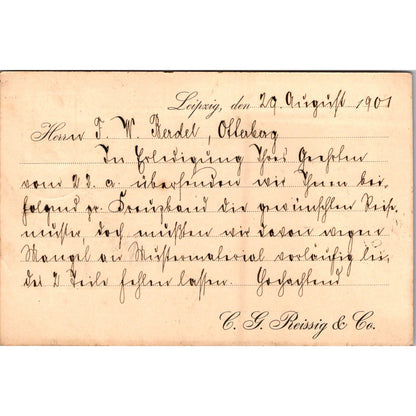 Leipzig, den 29. August 1901
Herrn F. W. Berdel, Otterberg
In Erledigung Ihres Geehrten
vom 22. c. übersenden wir Ihnen bei-
folgend pr. Kreuzband die gewünschten Reise
muster, doch mußten wir davon wegen
Mangel an Mustermaterial vorläufig lei-
der 2 Teile fehlen lassen. Hochachtend
C. G. Reissig & Co.